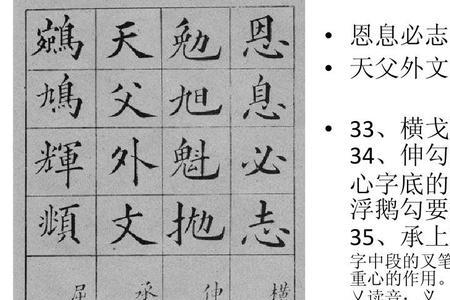 恩息必志
勉旭魁抛
天父外文
鵷鳩輝頫
伸
承
屈
• 恩息必志
• 天父外文
• 33、横戈
34、伸勾
心字底的
浮鹅勾要
35、承上
字中段的叉笔
重心的作用。
乂读音：